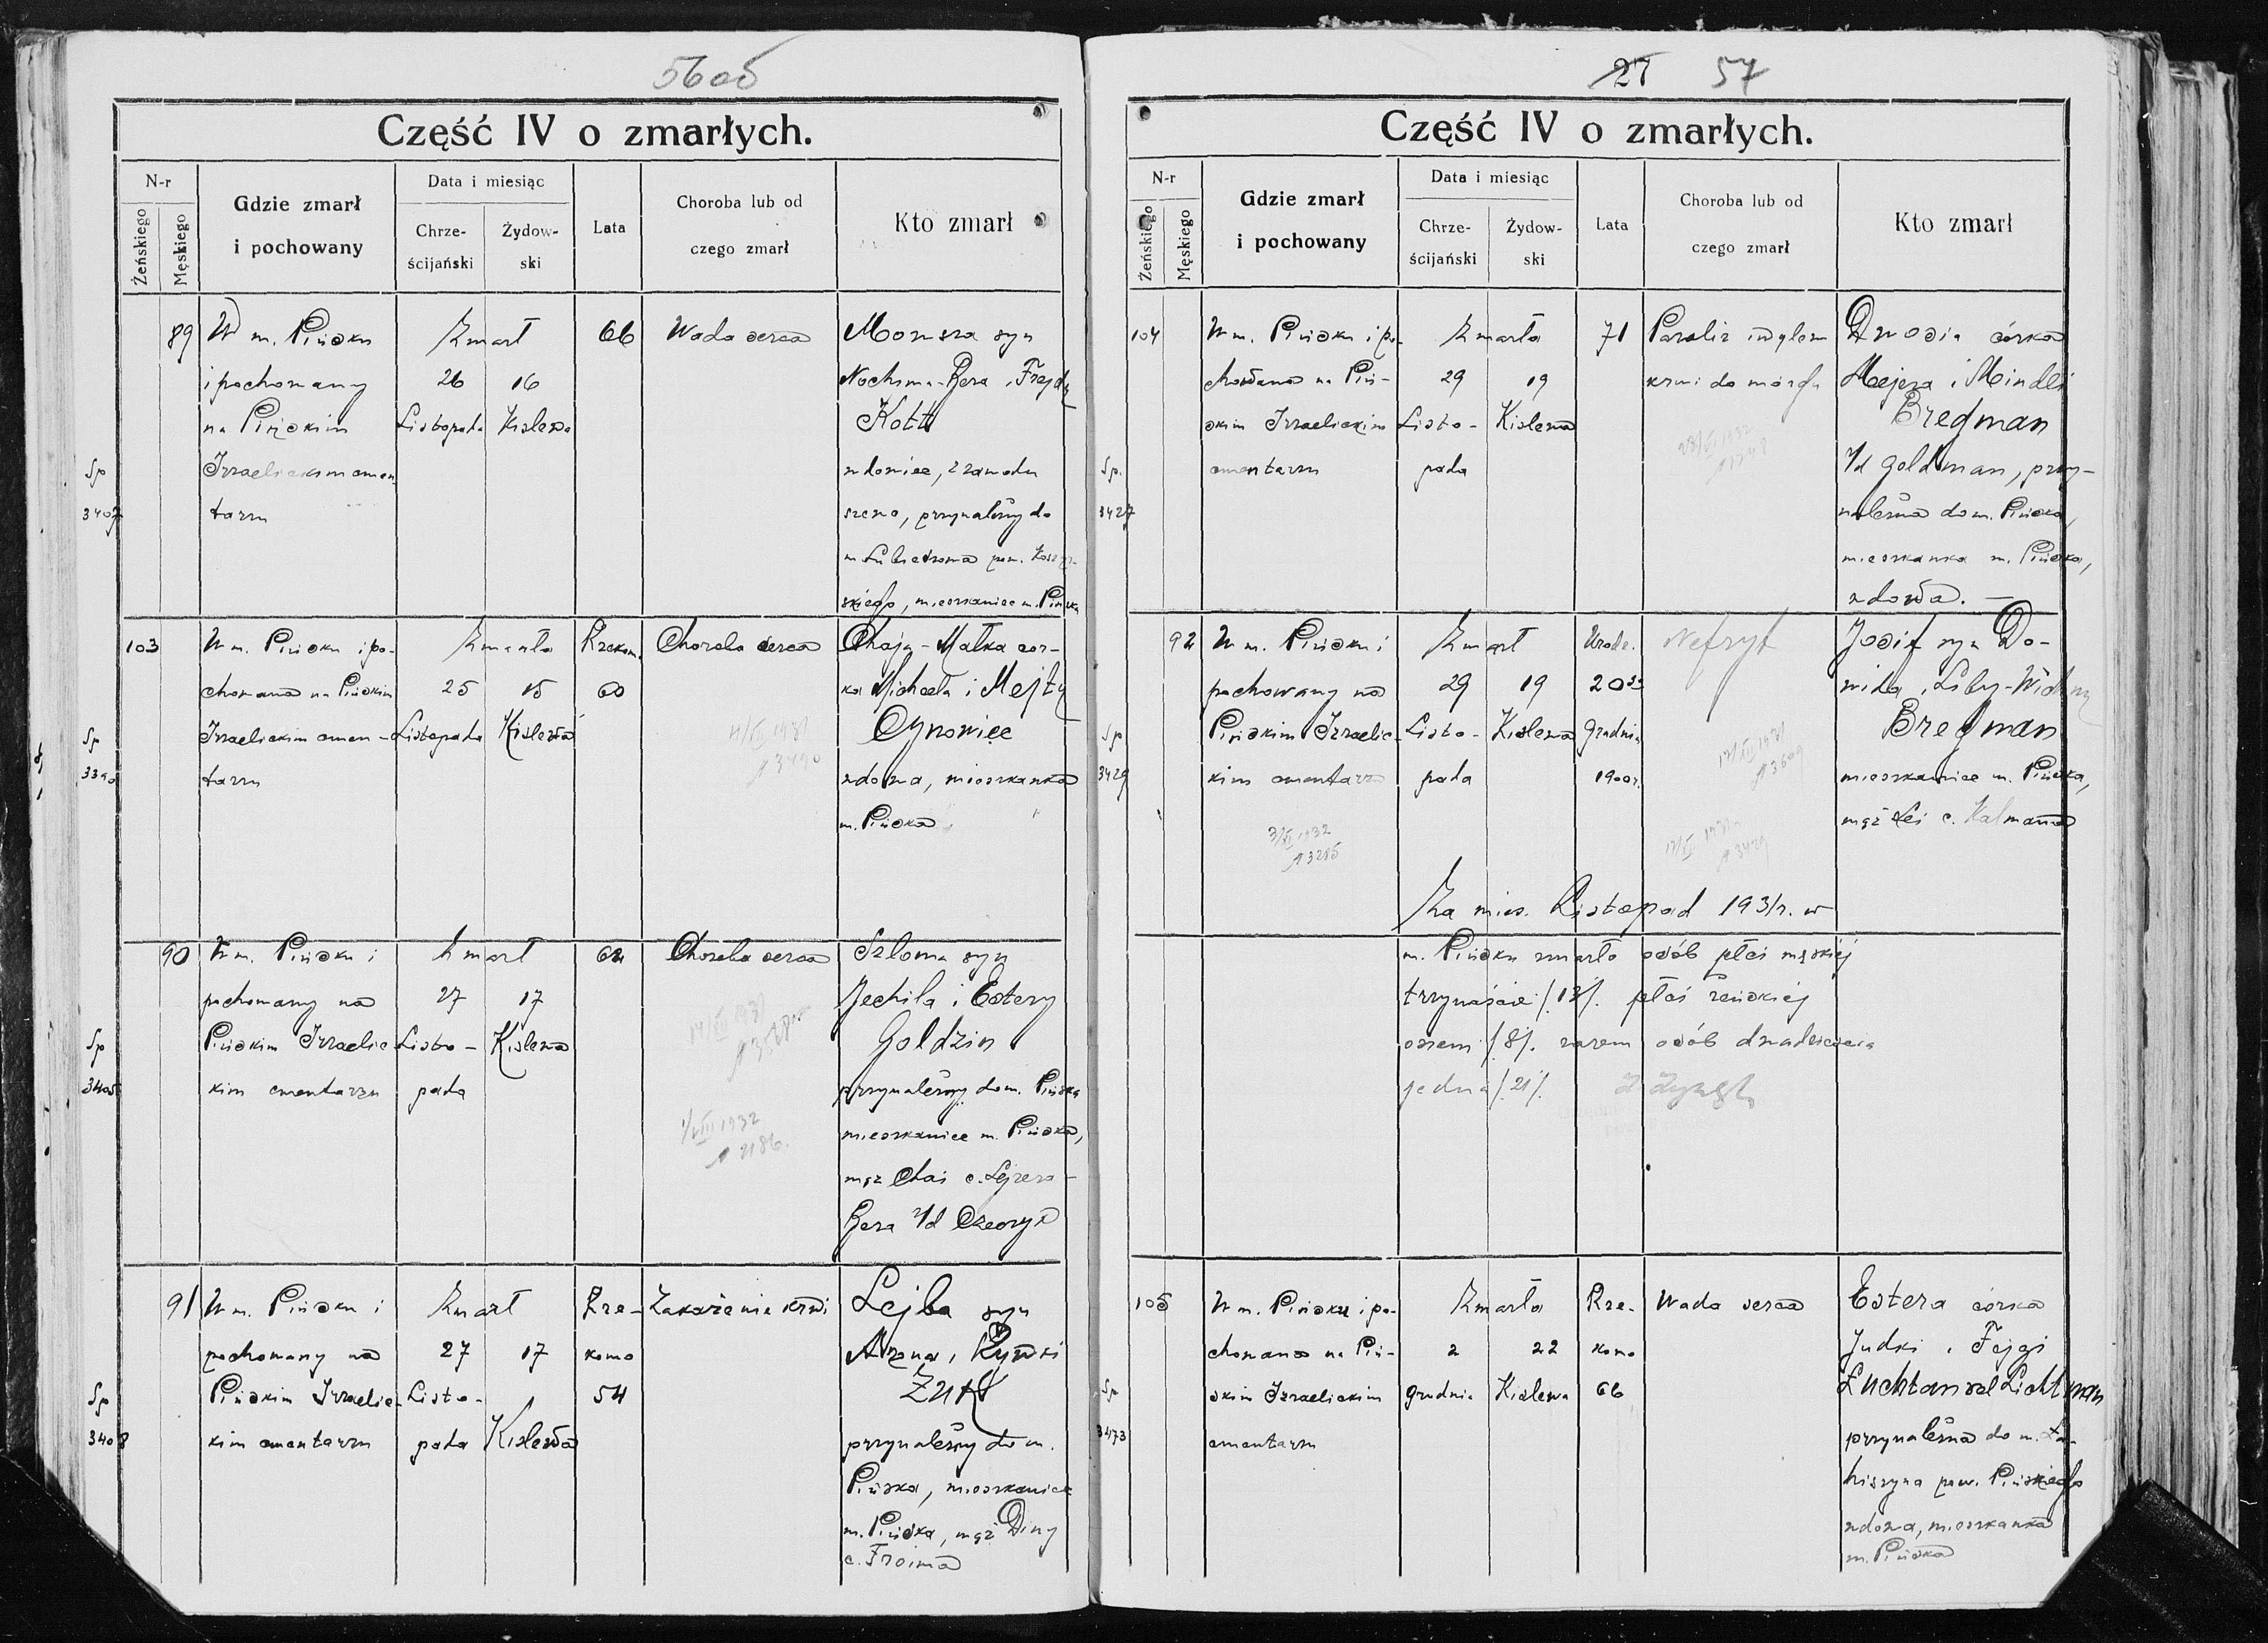 56 05
Część IV o zmarłych.
N-r
Żeńskiego
Męskiego
Gdzie zmarł
i pochowany
Data i miesiąc
Chrze-
ścijański
Żydow-
ski
Lata
Choroba lub od
czego zmarł
Kto zmarł
Sp
3407
89
W m. Pińsku
i pochowany
na Pińskim
Izraelickim cmen
tarzu
Zmarł
26 16
Listopada Kislewa
66
Wada serca
Mowsza syn
Nochima-Bera i Frejdy
Kott
wdowiec, z zawodu
szewc, przynależny do
m Lubieszowa pow. Koszyr-
skiego, mieszkaniec m. Pińska
Sp
3390
103
W m. Pińsku i po-
chowana na Pińskim
Izraelickim cmen-
tarzu
Zmarła
25 15
Listopada Kislewa
Rzekom.
60
Choroba serca
Chaja-Małka cór-
ka Michaela i Mejty
Cynowiec
wdowa, mieszkanka
m. Pińska
Sp
3405
90
W m. Pińsku i
pochowany na
Pińskim Izraelic-
kim cmentarzu
Zmarł
27 17
Listo- Kislewa
pada
62
Choroba serca
1/VIII 1932
2186.
Szloma syn
Jechila i Estery
Goldzin
przynależny do m. Pińska
mieszkaniec m. Pińska,
mąż Chai c. Lejzera-
Bera
Sp
3408
91
W m. Pińsku i
pochowany na
Pińskim Izraelic-
kim cmentarzu
Zmarł
27 17
Listo-
pada Kislewa
Rze-
komo
54
Zakażenie krwi
Lejba syn
Arona i Rywki
Żuk
przynależny do m.
Pińska, mieszkaniec
m. Pińska, mąż Diny
c. Froima
27 57
Część IV o zmarłych.
N-r
Żeńskiego
Męskiego
Gdzie zmarł
i pochowany
Data i miesiąc
Chrze-
ścijański
Żydow-
ski
Lata
Choroba lub od
czego zmarł
Kto zmarł
Sp.
3427
104
W m. Pińsku i po-
chowana na Piń-
skim Izraelickim
cmentarzu
Zmarła
29 19
Listo- Kislewa
pada
71
Paraliż i wylew
krwi do mózgu
Dwosia córka
Mejera i Mindli
Bregman
z/d Goldman, przy-
należna do m. Pińska,
mieszkanka m. Pińska,
wdowa. —
Sp
3429
92
W m. Pińsku i
pochowany na
Pińskim Izraelic-
kim cmentarzu
3/XI 1932
3285
Zmarł
29 19
Listo- Kislewa
pada
Urodz.
20
Grudnia
1900r.
Nefryt
Josif syn Do-
wida i Liby-
Bregman
mieszkaniec m. Pińska,
mąż Lei c. Kalmana
Za mies. Listopad 1931r. w
m. Pińsku zmarło osób płci męskiej
trzynaście /13/. płci żeńskiej
osiem /8/. razem osób dwadzieścia
jedna /21/.
Sp
3473
105
W m. Pińsku i po-
chowana na Piń-
skim Izraelickim
cmentarzu
Zmarła
2 22
grudnia Kislewa
Rze-
komo
66
Wada serca
Estera córka
Judki i Fejgi
Łuchtan vel Lichtman
przynależna do m. Ło-
hiszyna pow. Pińskiego
wdowa, mieszkanka
m. Pińska